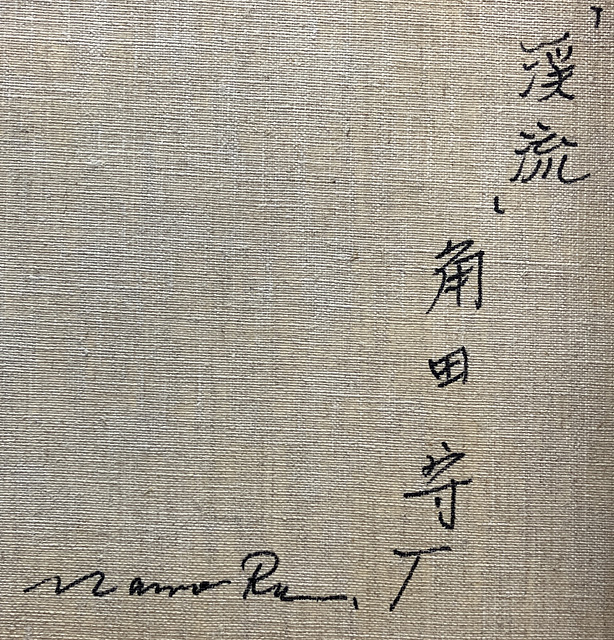 「渓流」
角田守
Mamoru.T